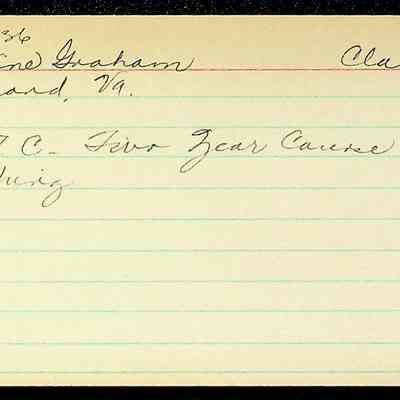 36
ine Graham Cla
and, Va.
C- Two Year Course